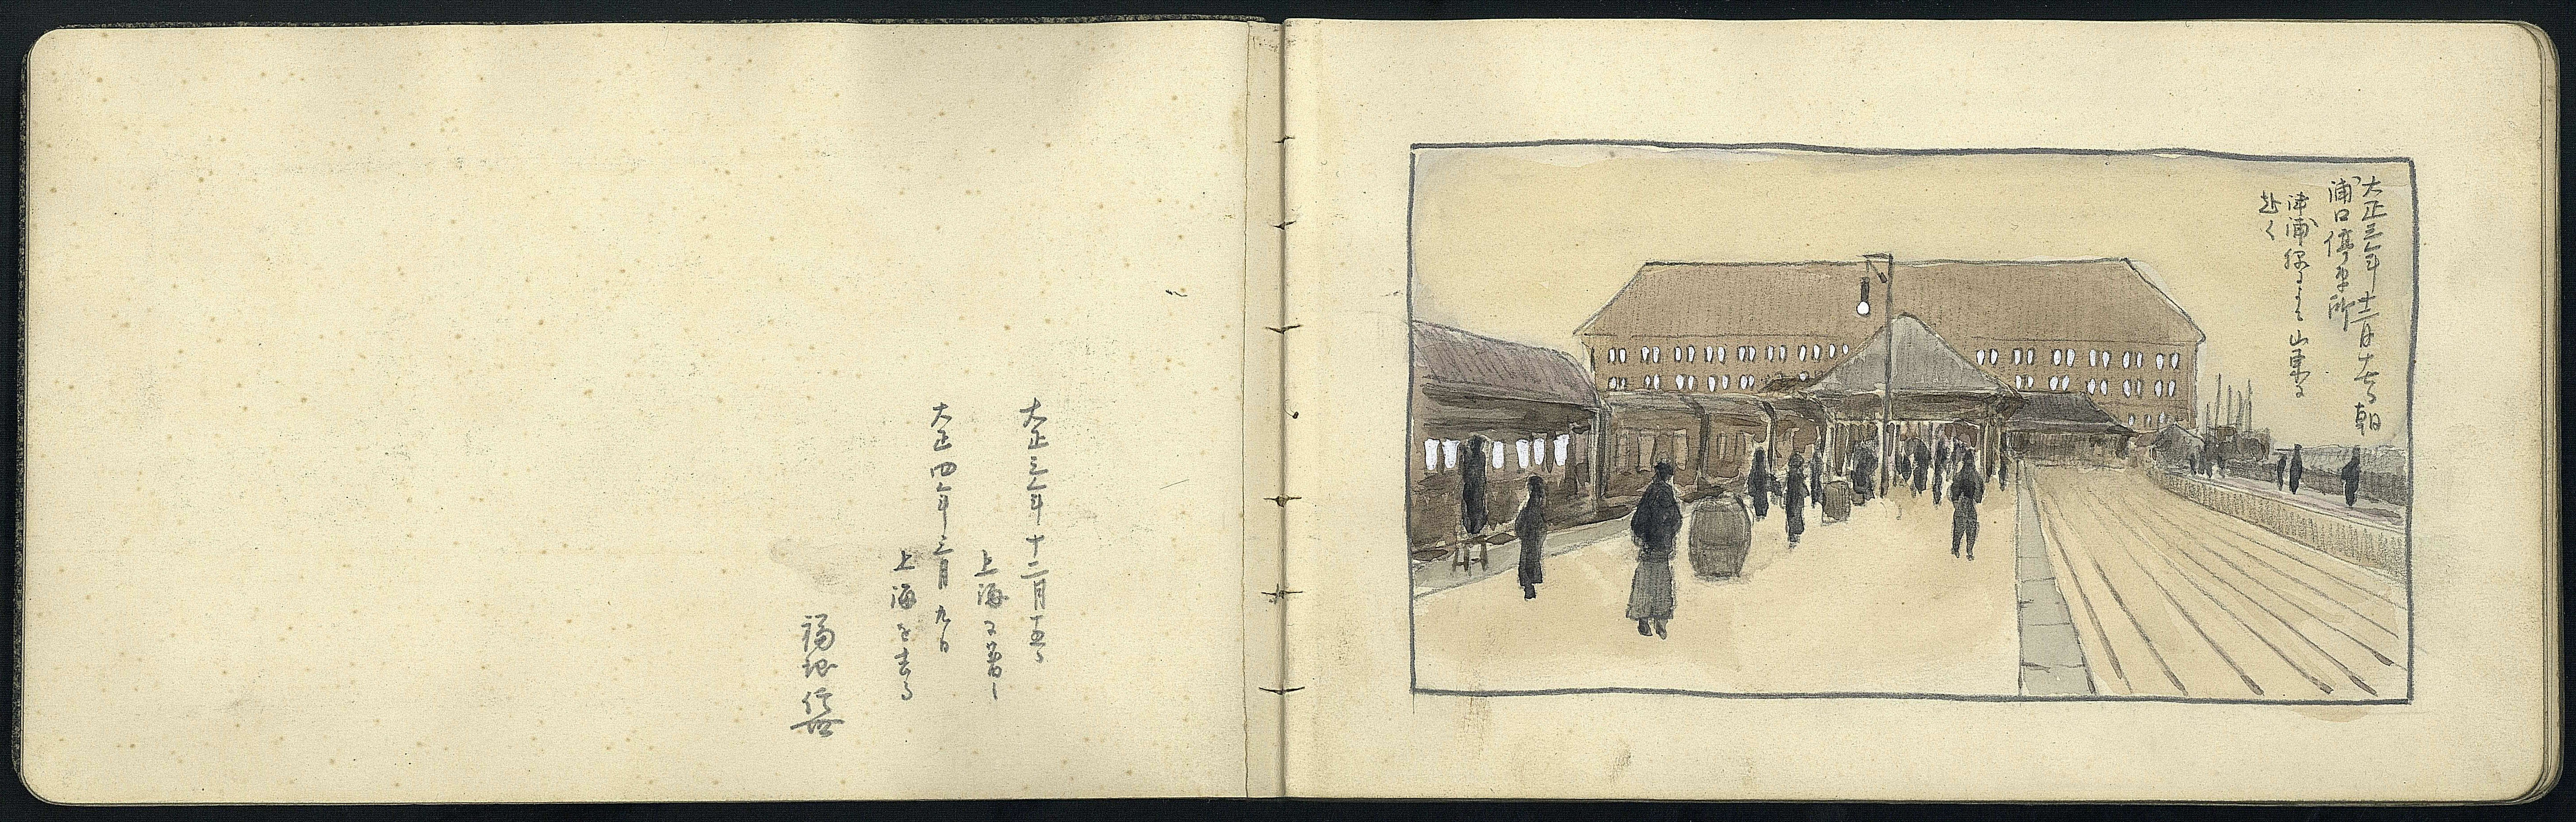 大正三年十二月五日
上海に着し
大正四年三月九日
上海を去る
福地信世
大正三年十二月 朝
浦口停車所
津浦線により山東に
赴く